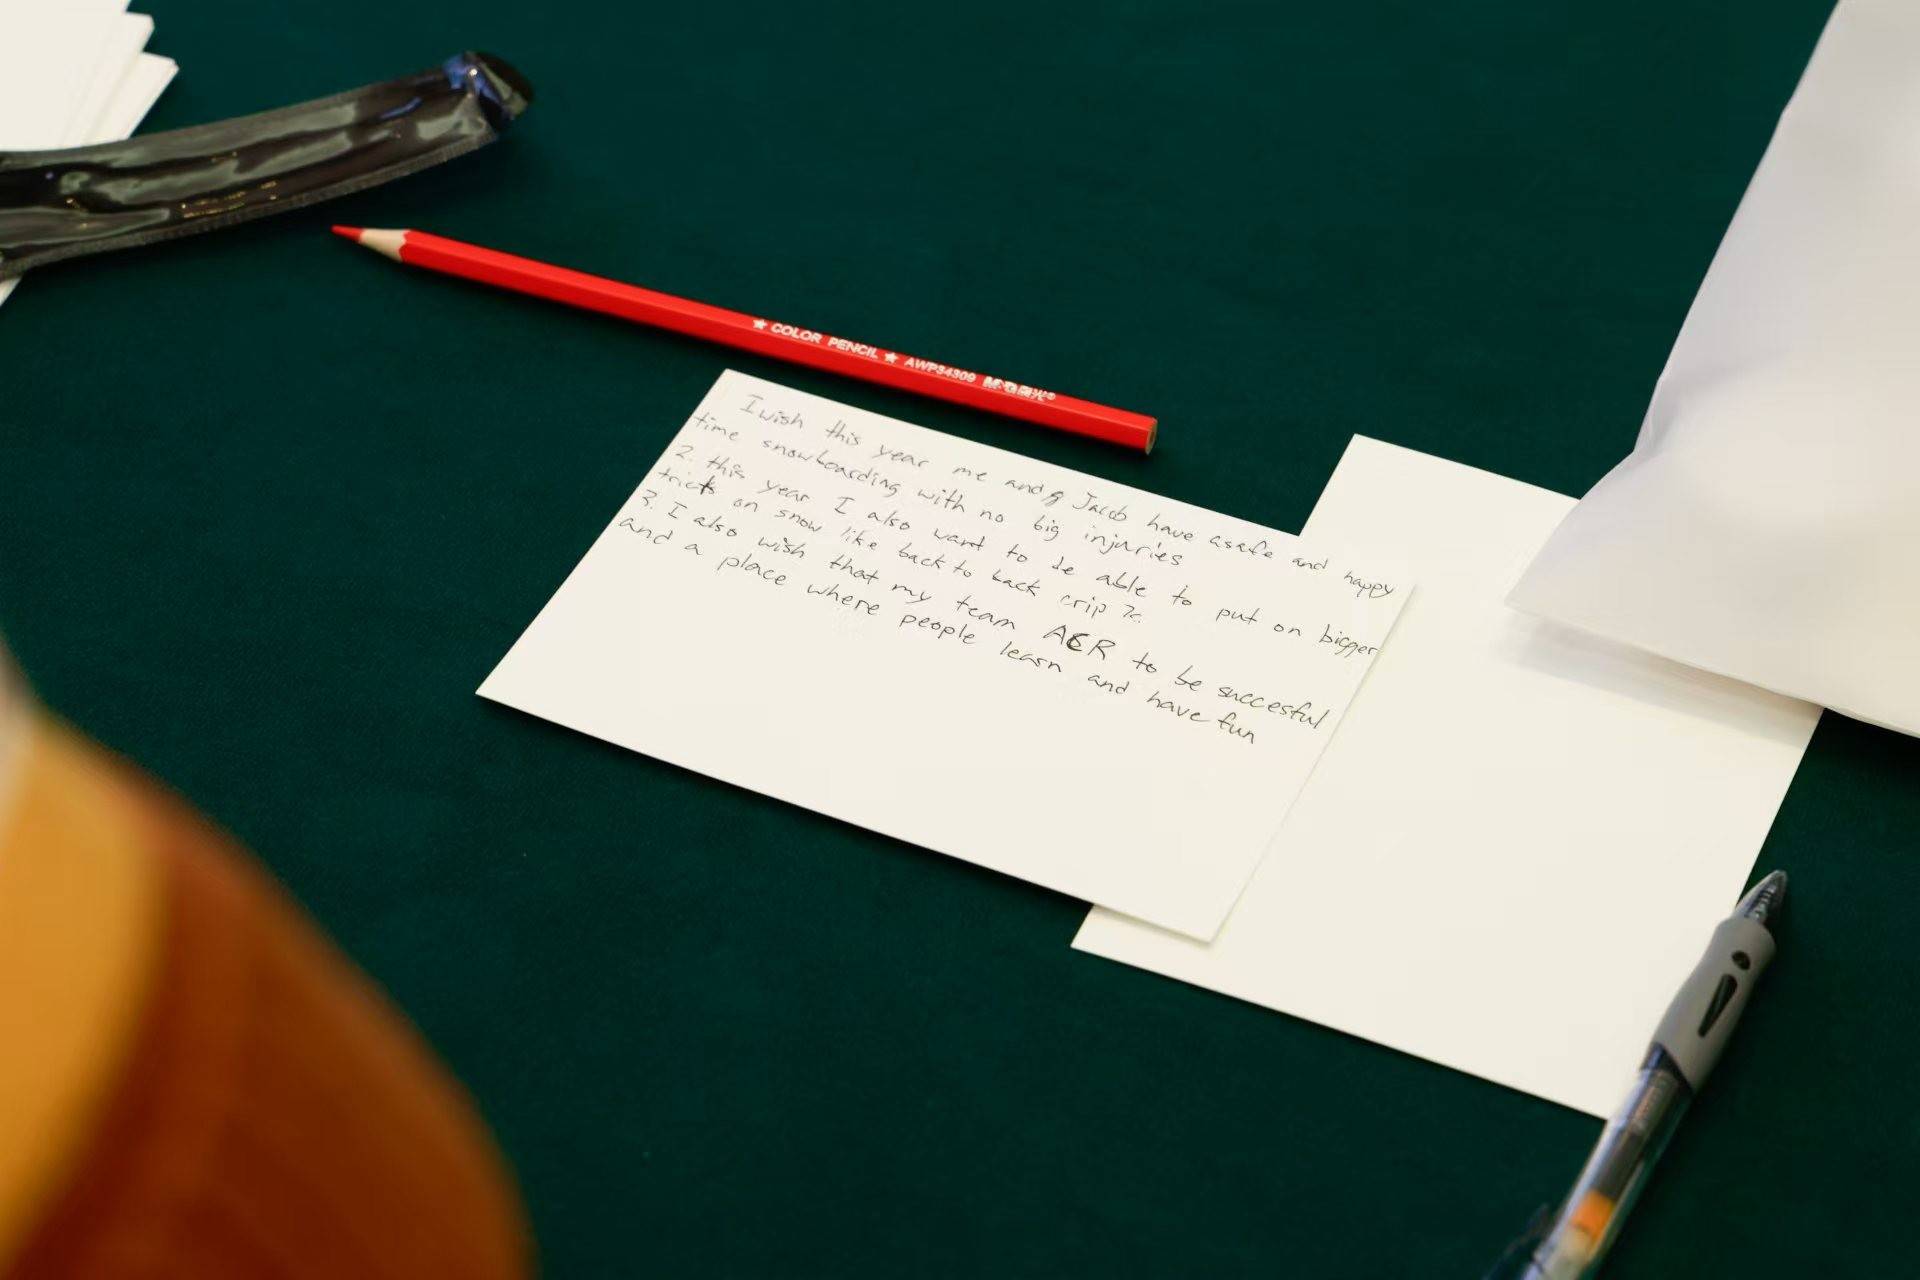 ★ COLOR PENCIL ★ AWP34309 M&G晨光®
I wish this year me and Jacob have a safe and happy
time snowboarding with no big injuries
2. this year I also want to be able to put on bigger
tricks on snow like back to back crip
3. I also wish that my team ACR to be succesful
and a place where people learn and have fun